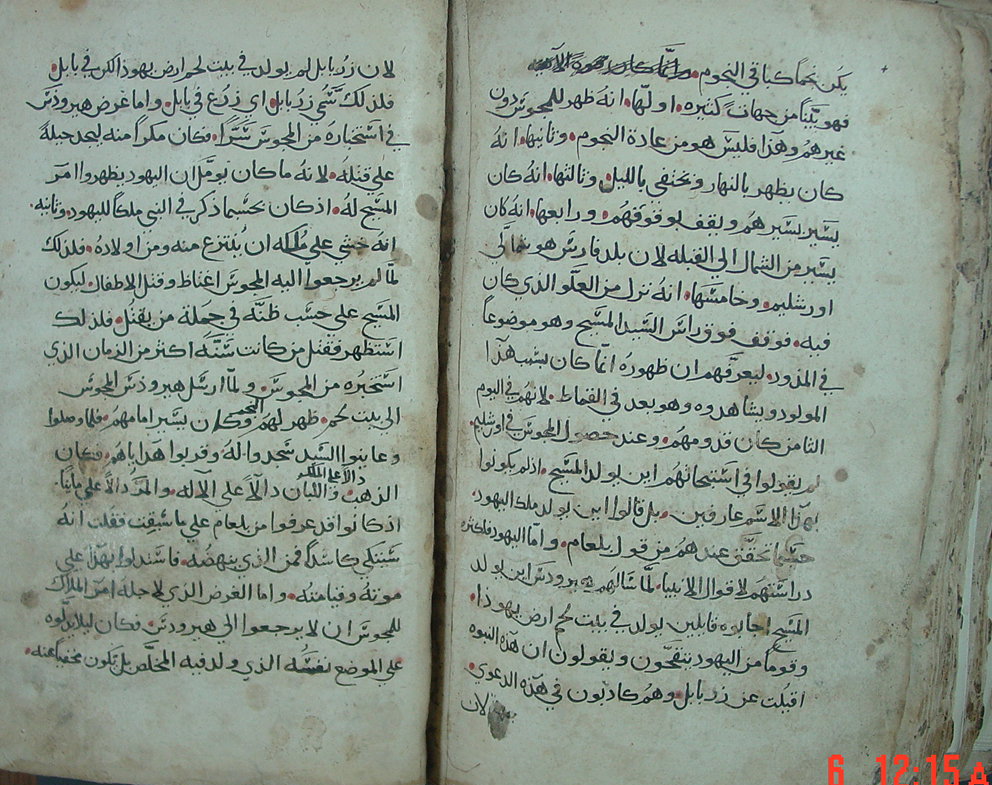 يكن نجماً كباقي النجوم
فهو بيّناً من جهات كثيره اولها انه ظهر للمجوس دون
غيرهم وهذا فليس هو من عادة النجوم وثانيها انهُ
كان يظهر بالنهار ويختفي بالليل وثالثها انهُ كان
يسير بسيرهم ويقف بوقوفهم ورابعها انه كان
يسير من الشمال الي القبله لان بلد فارس هو شمالي
اورشليم وخامسها انه نزل من العلو الذي كان
فيه فوقف فوق راس السيد المسيح وهو موضوعاً
في المذود ليعرّفهم ان ظهورهُ انما كان بسبب هذا
المولود ويشاهدوه وهو بعد في القماط لانهم في اليوم
الثامن كان قدومهم وعند حصول المجوس في اورشليم
لم يقولوا في استبحاثهم اين يولد المسيح اذ لم يكونوا
بهذا الاسم عارفين بل قالوا اين يولد ملك اليهود
حسبما تحقق عندهم من قول بلعام واما اليهود فلكثره
دراستهم لاقوال الانبيا لما سالهم هيرودس اين يولد
المسيح اجابوه قايلين يولد في بيت لحم ارض يهوذا
وقوماً من اليهود يتقحون ويقولون ان هذه النبوه
اقيلت عن زربابل وهم كاذبون في هذه الدعوي
لان
لان زربابل لم يولد في بيت لحم ارض يهوذا لكن في بابل
فلذلك سُمي زربابل اي زرع في بابل واما غرض هيرودس
في استخباره من المجوس سراً فكان مكراً منه ليجد حيلةً
علي قتله لانه ما كان يومّل ان اليهود يظهروا امر
المسيح له اذ كان بحسبما ذكر في النبي ملكاً لليهود وثانيه
انه خشي علي ملكه ان يُنتزع منه ومن اولاده فلذلك
لمّا لم يرجعوا اليه المجوس اغتاظ وقتل الاطفال ليكون
المسيح علي حسب ظنّه في جملة من يقتل فلذلك
استظهر فقتل من كانت سنّه اكثر من الزمان الذي
استخبره من المجوس ولمّا ارسل هيرودس المجوس
الي بيت لحم ظهر لهم النجم وكان يسير امامهم فلما وصلوا
وعاينوا السيد سجدوا له وقربوا هداياهم فكان
الذهب دالاً علي الملك واللبان دالاً علي الآله والمرّ دالاً علي مايتاً
اذ كانوا قد عرفوا من بلعام علي ما سبقت فقلت انهُ
سيتكي كاسد فمن الذي ينهضه فاستدلوا بهذا علي
موته وقيامته واما الغرض الذي لاجله امر الملاك
للمجوس ان لا يرجعوا الي هيرودس فكان ليلا يدلوه
علي الموضع نفسُه الذي ولد فيه المخلّص بل يكون مخفياً عنه
6 12:15 A